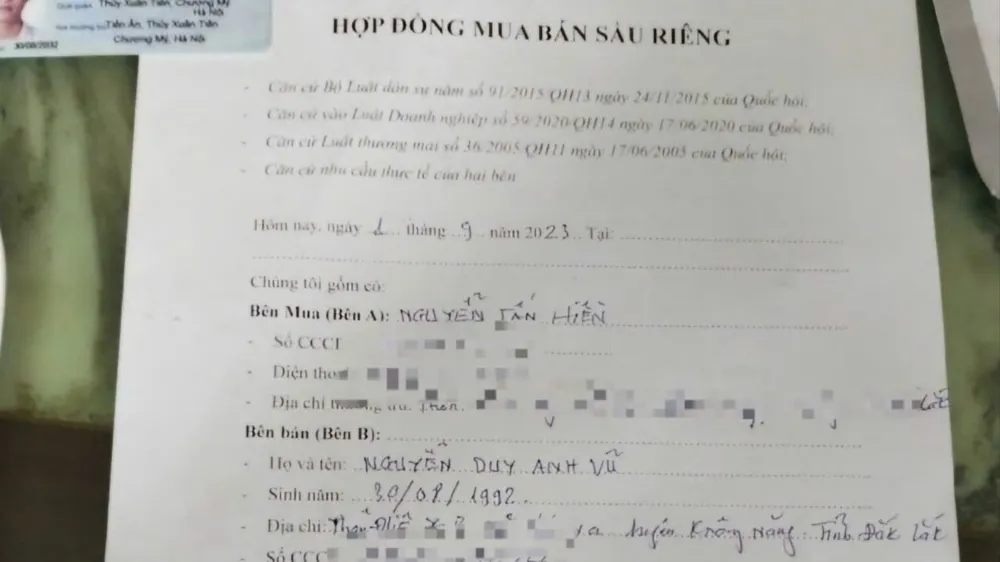 Thủy Xuân Tiên, Chương Mỹ
Hà Nội
Tiến Ân, Thủy Xuân Tiên
Chương Mỹ, Hà Nội
30/08/2032
HỢP ĐỒNG MUA BÁN SẦU RIÊNG
- Căn cứ Bộ Luật dân sự năm số 91/2015/QH13 ngày 24/11/2015 của Quốc hội;
- Căn cứ vào Luật Doanh nghiệp số 59/2020/QH14 ngày 17/06/2020 của Quốc hội;
- Căn cứ Luật thương mại số 36/2005/QH11 ngày 17/06/2005 của Quốc hội;
- Căn cứ nhu cầu thực tế của hai bên
Hôm nay, ngày 1 tháng 9 năm 2023. Tại:
Chúng tôi gồm có:
Bên Mua (Bên A): NGUYỄN TẤN HIỀN
- Số CCCD
- Điện tho
- Địa chỉ
Bên bán (Bên B):
- Họ và tên: NGUYỄN DUY ANH VŨ
- Sinh năm: 30/08/1992.
- Địa chỉ: huyện Krông Năng Tỉnh Đắk Lắk
- Số CCC